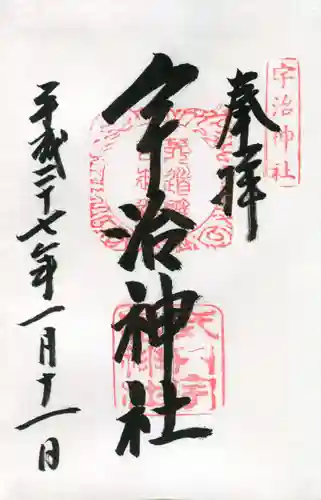 宇治神社
奉拝
宇治神社
平成二十七年一月十一日